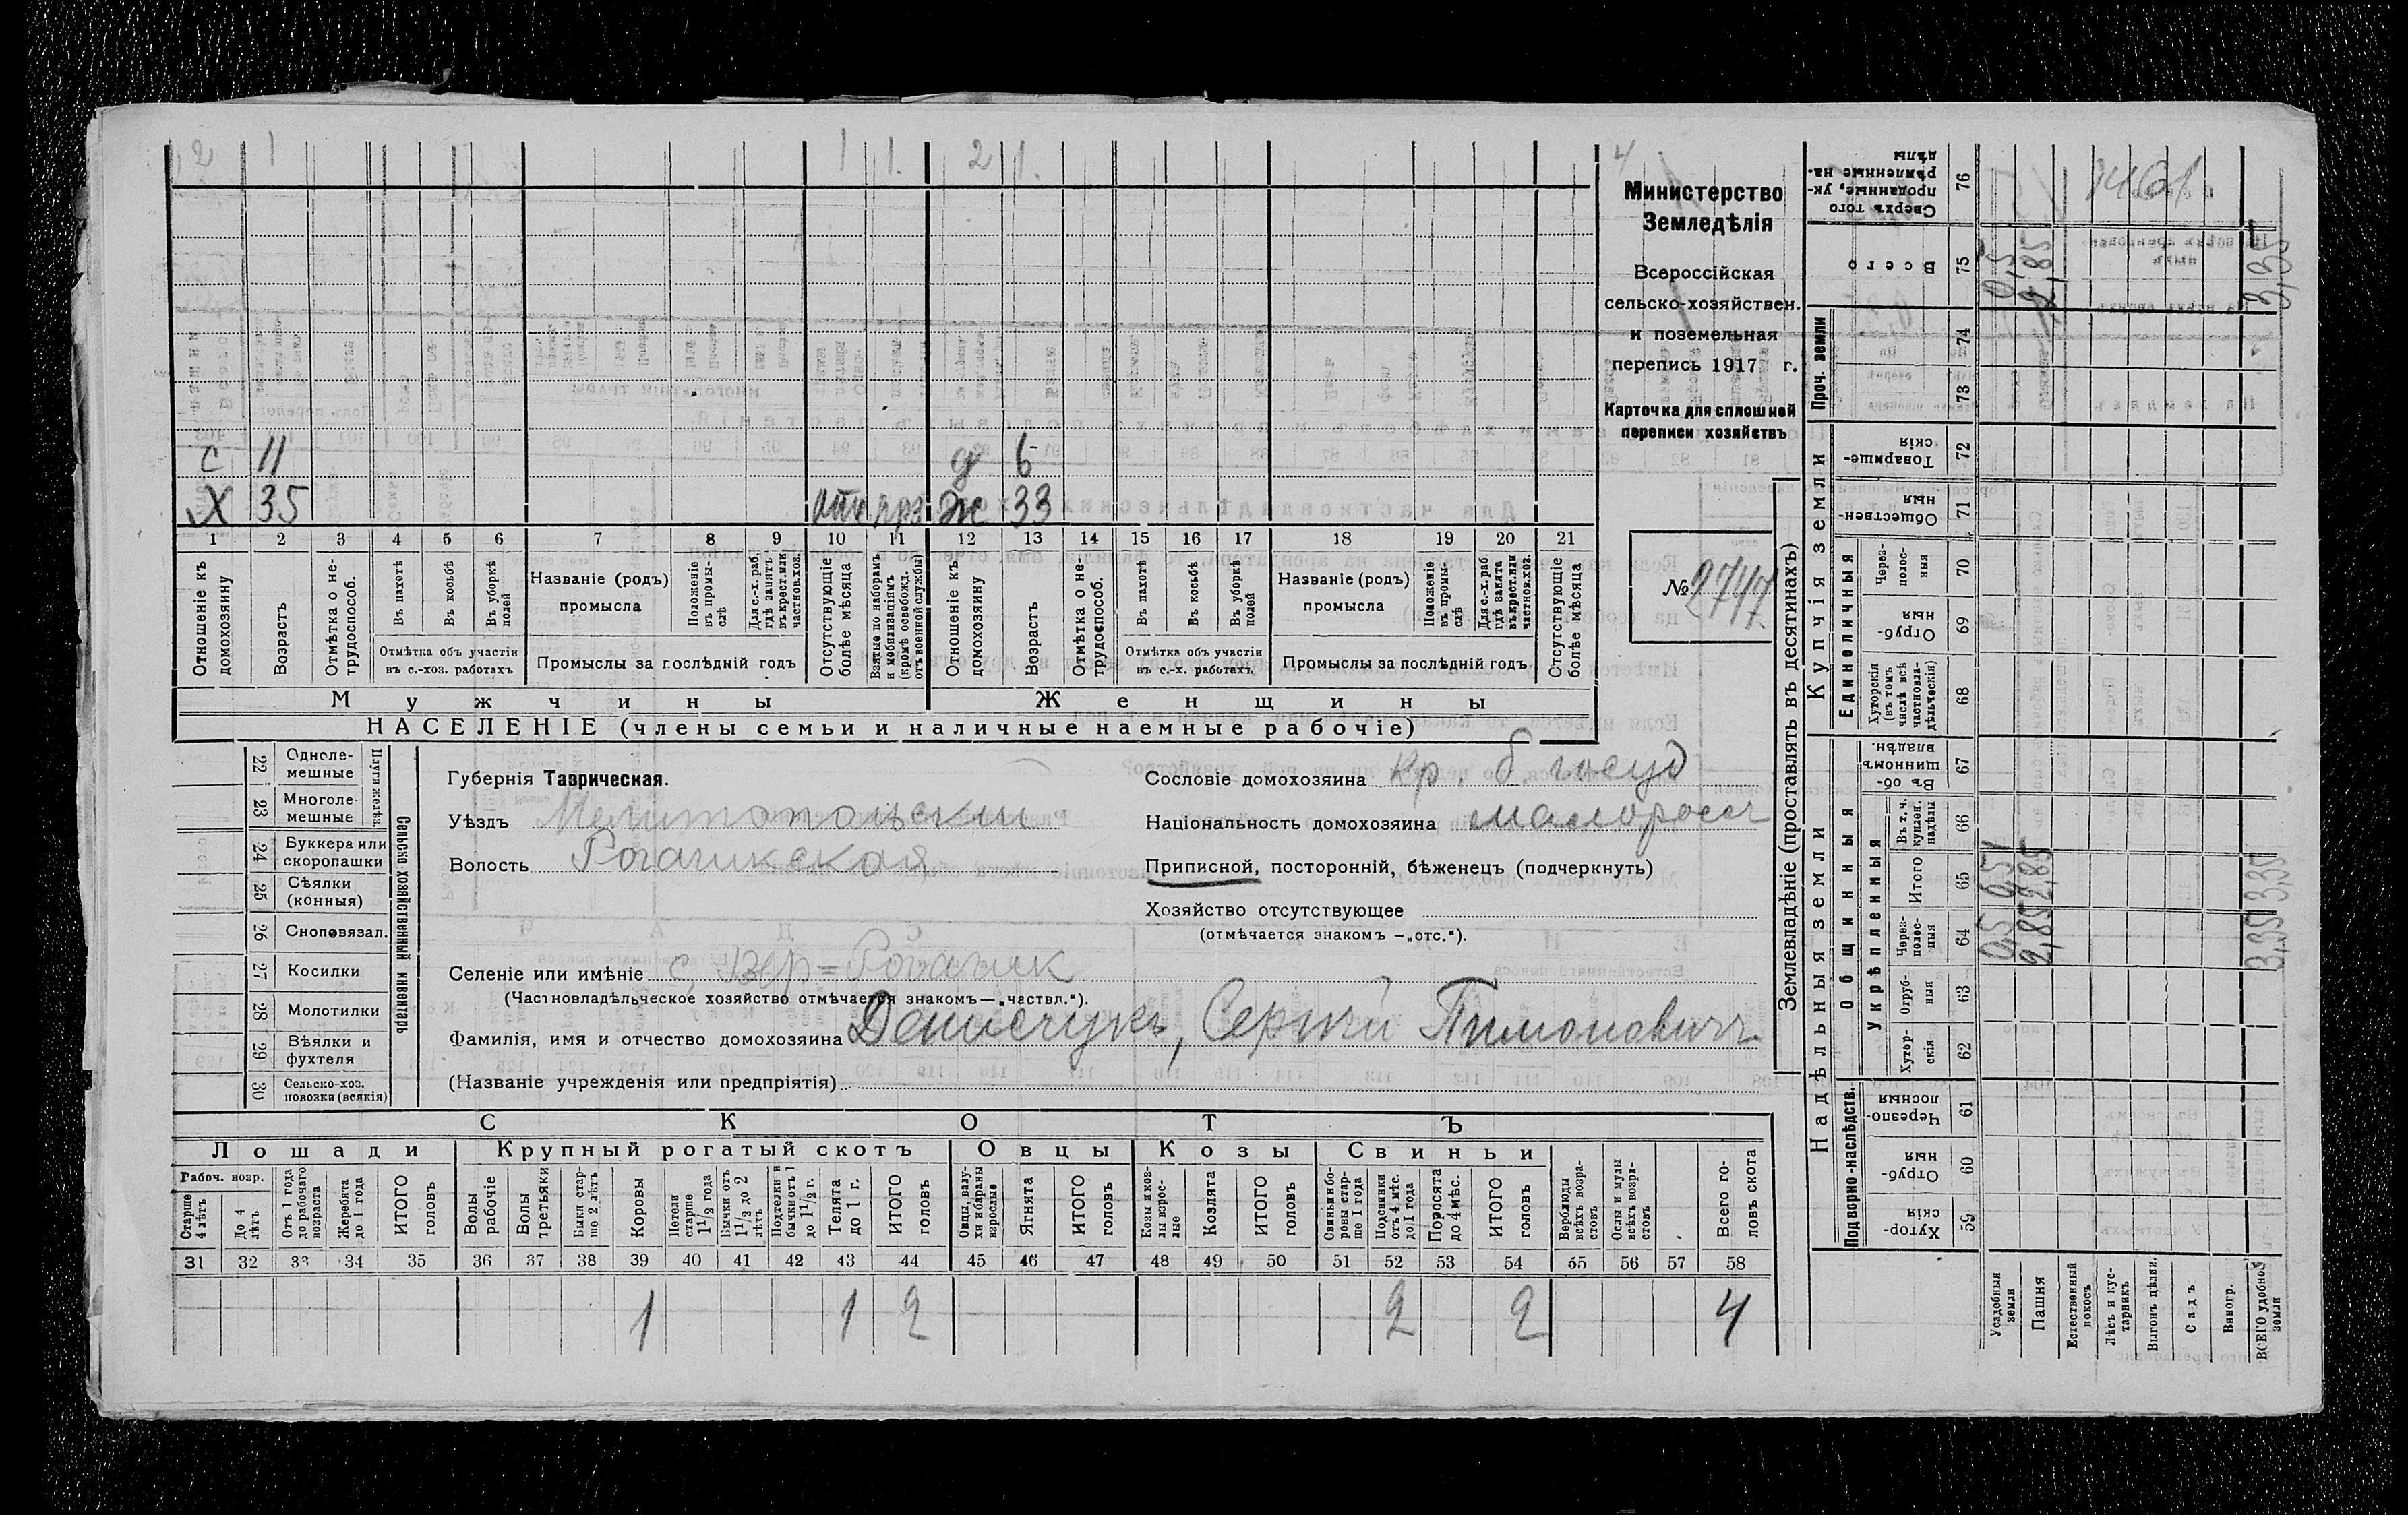 2 1 1 1. 2 1. 4
с 11 д 6
Х 35 отс. прз. Ж 33
1 2 3 4 5 6 7 8 9 10 11 12 13 14 15 16 17 18 19 20 21
Отношеніе къ домохозяину
Возрастъ
Отмѣтка о не-трудоспособ.
Въ пахотѣ
Въ косьбѣ
Въ уборкѣ полей
Отмѣтка объ участіи въ с.-хоз. работахъ
Названіе (родъ) промысла
Положеніе въ промы-слѣ
Для с.-х. раб. гдѣ занятъ въ крест. или частнов. хоз.
Промыслы за послѣдній годъ
Отсутствующіе болѣе мѣсяца
Взятые по наборамъ и мобилизаціямъ (кромѣ освобожд. отъ военной службы)
Отношеніе къ домохозяину
Возрастъ
Отмѣтка о не-трудоспособ.
Въ пахотѣ
Въ косьбѣ
Въ уборкѣ полей
Отмѣтка объ участіи въ с.-х. работахъ
Названіе (родъ) промысла
Положеніе въ промы-слѣ
Для с.-х. раб. гдѣ занята въ крест. или частнов. хоз.
Промыслы за послѣдній годъ
Отсутствующіе болѣе мѣсяца
Мужчины Женщины
НАСЕЛЕНІЕ (члены семьи и наличные наемные рабочіе)
Министерство
Земледѣлія
Всероссійская
сельско-хозяйствен.
и поземельная
перепись 1917 г.
Карточка для сплошной
переписи хозяйствъ
№ 2747
22 Одноле-мешные
23 Многоле-мешные
Плуги желѣз.
24 Буккера или скоропашки
25 Сѣялки (конныя)
26 Сноповязал.
27 Косилки
28 Молотилки
29 Вѣялки и фухтеля
30 Сельско-хоз. повозки (всякія)
Сельско-хозяйственный инвентарь
Губернія Таврическая.
Уѣздъ Мелитопольскій
Волость Рогачикская
Селеніе или имѣніе с. Вер=Рогачик
(Частновладѣльческое хозяйство отмѣчается знакомъ—„частвл.").
Фамилія, имя и отчество домохозяина Денисчукъ, Сергѣй Тимонович
(Названіе учрежденія или предпріятія)
Сословіе домохозяина кр. б. госуд
Національность домохозяина малоросс
Приписной, посторонній, бѣженецъ (подчеркнуть)
Хозяйство отсутствующее
(отмѣчается знакомъ —„отс.").
СКОТЪ
Лошади Крупный рогатый скотъ Овцы Козы Свиньи
Рабоч. возр.
Старше 4 лѣтъ
До 4 лѣтъ
Отъ 1 года до рабочаго возраста
Жеребята до 1 года
ИТОГО головъ
Волы рабочіе
Волы третьяки
Быки стар-ше 2 лѣтъ
Коровы
Нетели старше 1 1/2 года
Бычки отъ 1 1/2 до 2 лѣтъ
Подтелки и бычки отъ 1 до 1 1/2 г.
Телята до 1 г.
ИТОГО головъ
Овцы, валу-хи и бараны взрослые
Ягнята
ИТОГО головъ
Козы и коз-лы взрос-лые
Козлята
ИТОГО головъ
Свиньи и бо-ровы стар-ше 1 года
Подсвинки отъ 4 мѣс. до 1 года
Поросята до 4 мѣс.
ИТОГО головъ
Верблюды всѣхъ возра-стовъ
Ослы и мулы всѣхъ возра-стовъ
Всего го-ловъ скота
31 32 33 34 35 36 37 38 39 40 41 42 43 44 45 46 47 48 49 50 51 52 53 54 55 56 57 58
1 1 2 2 2 4
Землевладѣніе (проставлять въ десятинахъ)
Купчія земли
Надѣльныя земли
Сверхъ того проданные, ук-рѣпленные на-дѣлы 76
Всего 75 0,5 2,85 3,35
Проч. земли 74 73
Товарище-скія 72
Обществен-ныя 71
Единоличныя
Через-полос-ныя 70
Отруб-ныя 69
Хуторскія (въ томъ числѣ всѣ частновла-дѣльческія) 68
Общинныя
Въ об-щинномъ владѣн. 67
Укрѣпленныя
Въ т. ч. куплен. надѣлы 66
Итого 65 0,5 2,85 3,35
Через-полос-ныя 64 0,5 2,85 3,35
Отруб-ныя 63
Хутор-скія 62
Подворно-наслѣдств.
Черезпо-лосныя 61
Отруб-ныя 60
Хутор-скія 59
Усадебныя земли
Пашня
Естественный покосъ
Лѣсъ и кус-тарникъ
Выгонъ цѣлин.
Садъ
Виногр.
ВСЕГО удобной земли